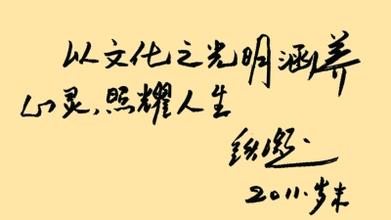 以文化之光明涵养
心灵，照耀人生
铁凝
2011.岁末